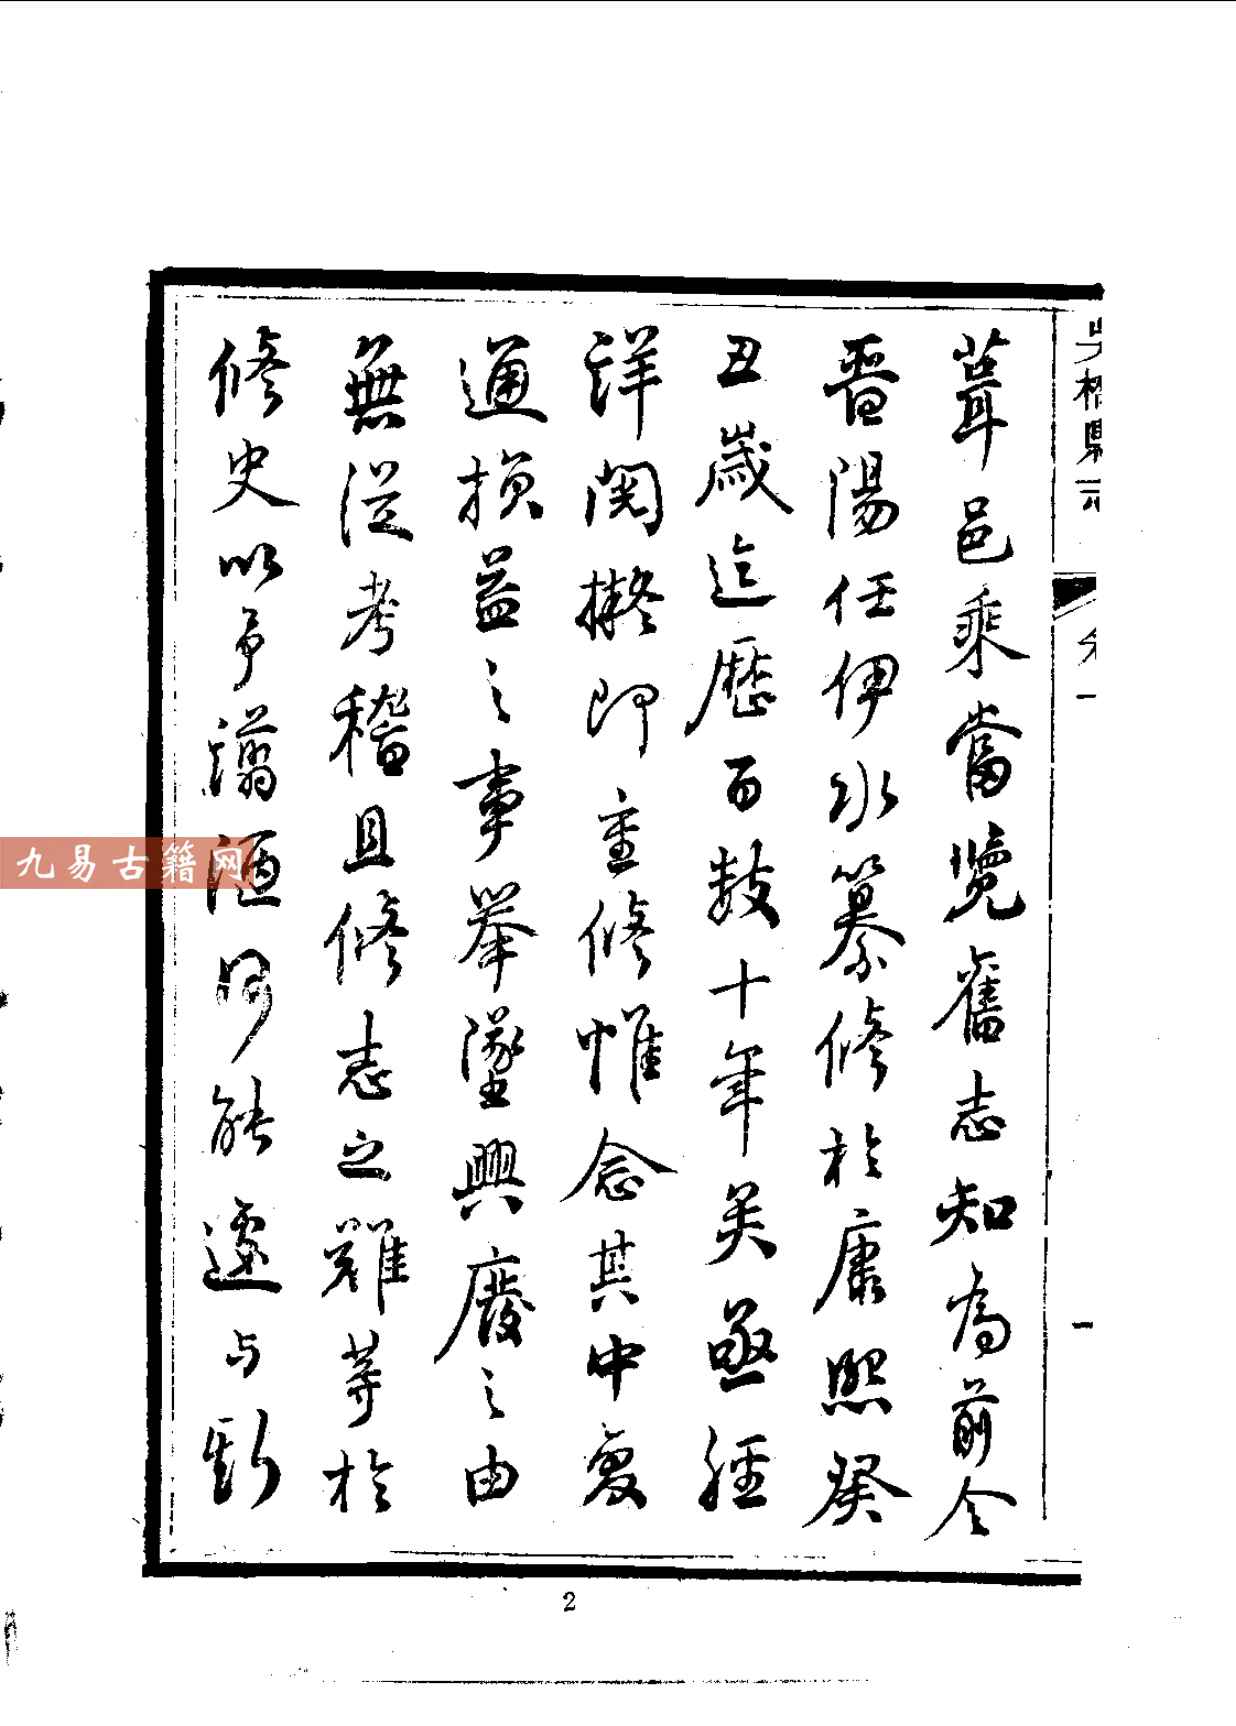 葺邑乘嘗覽舊志知為前令
晉陽任伊水纂修於康熙癸
丑歲迄歷百數十年矣亟經
詳閱擬即重修惟念其中變
通損益之事舉墜興廢之由
無從考稽且修志之難等於
修史以予譾陋何能遽与斯
橋縣
一
一
九易古籍网
2